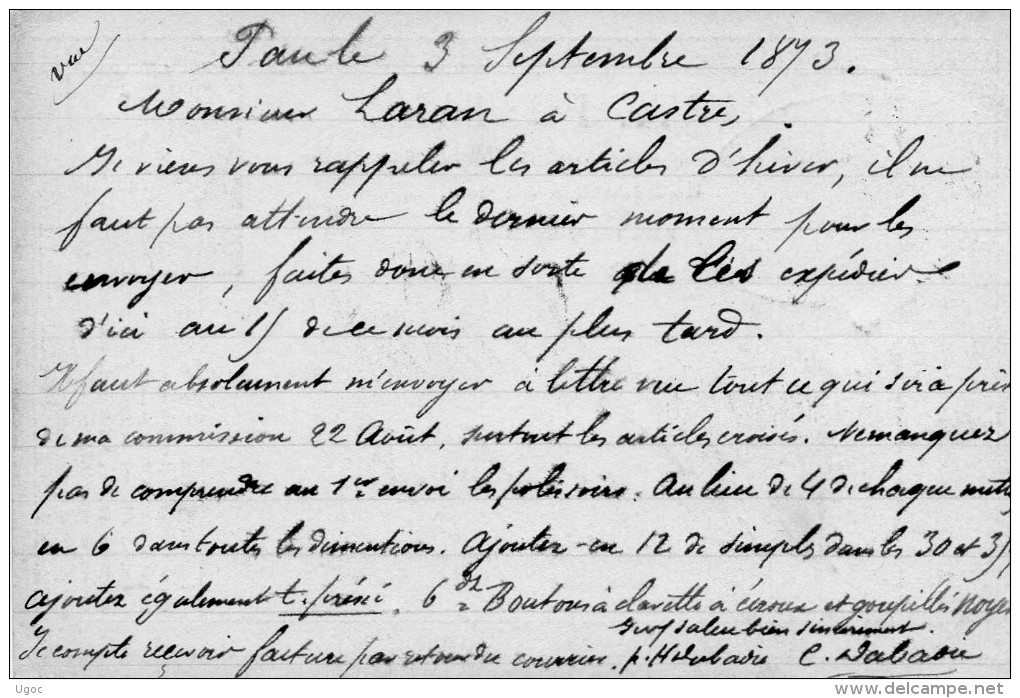 vu
Pau le 3 Septembre 1873.
Monsieur Laran à Castres,
Je viens vous rappeler les articles d'hiver, il ne
faut pas attendre le dernier moment pour les
envoyer, faites donc en sorte de les expédier
d'ici au 15 de ce mois au plus tard.
Il faut absolument m'envoyer à lettre vue tout ce qui sera prêt
de ma commission 22 Août, surtout les articles croisés. Ne manquez
pas de comprendre au 1er envoi les polissoirs. Au lieu de 4 de chaque mettez
en 6 dans toutes les dimentions. Ajoutez-en 12 de simples dans les 30 et 35
ajoutez également 6 dz Boutons à clavette à écroux et goupilles noyer
Je vs salue bien sincèrement.
Je compte recevoir facture par retour du courrier. p. H Dabadie C. Dabadie
Ugoc
delcampe.net